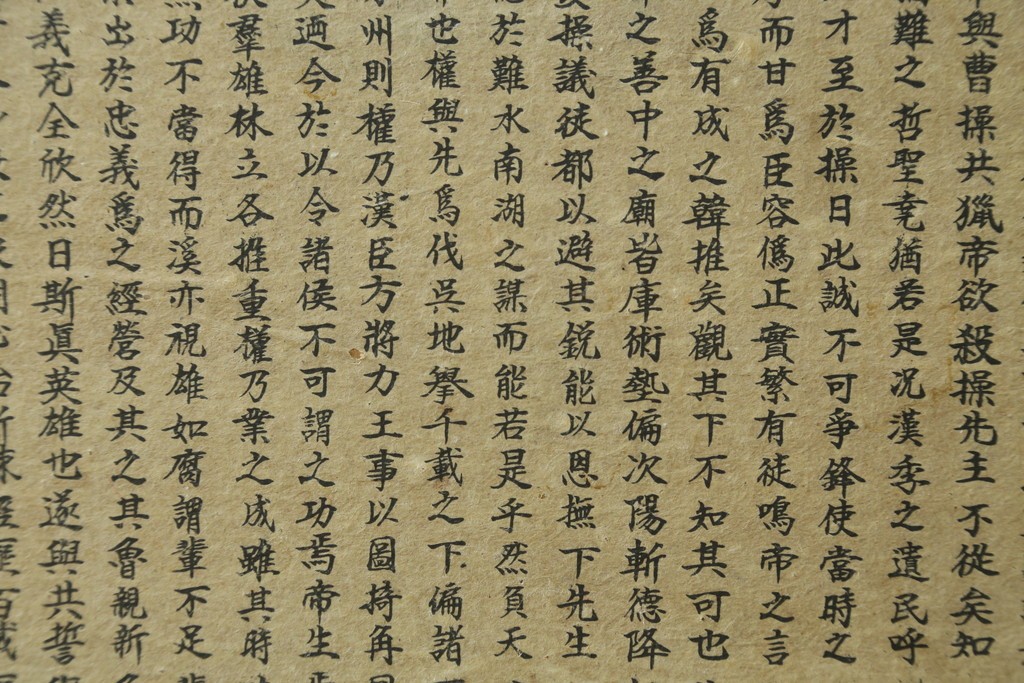 與曹操共獵帝欲殺操先主不從矣知
難之哲聖
猶若是况漢季之遺民呼
才至於操日此誠不可爭鋒使當時之
而甘爲臣容僞正實繁有徒鳴帝之言
爲有成之韓推矣觀其下不知其可也
之善中之廟皆庫術
偏次陽斬德降
操議徒都以避其銳能以恩撫下先生
於難水南湖之謀而能若是乎然負天
也權與先爲伐吳地舉千載之下偏諸
州則權乃漢臣方將力王事以圖掎角
迺今於以令諸侯不可謂之功焉帝生
羣雄林立各推重權乃業之成雖其時
功不當得而溪亦視雄如腐謂輩不足
出於忠義爲之經營及其之其魯親新
義克全欣然日斯眞英雄也遂與共誓